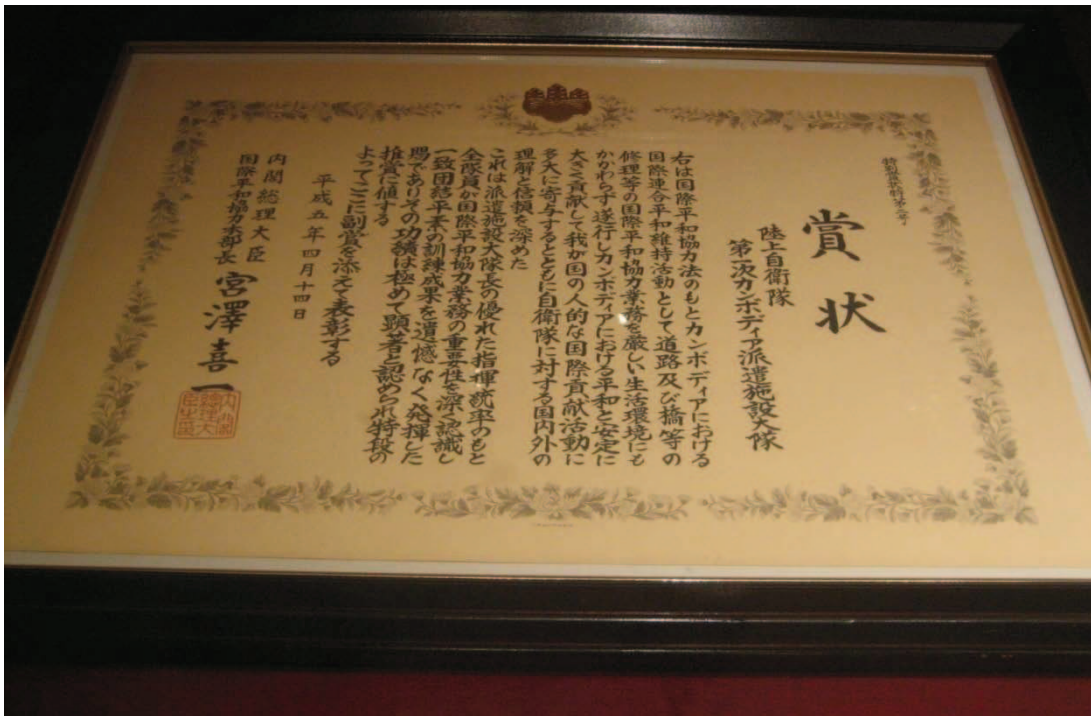 賞状
陸上自衛隊
第一次カンボディア派遣施設大隊
右は国際平和協力法のもとカンボディアにおける
国際連合平和維持活動として道路及び橋等の
修理等の国際平和協力業務を厳しい生活環境にも
かかわらず遂行しカンボディアにおける平和と安定に
大きく貢献して我が国の人的な国際貢献活動に
多大に寄与するとともに自衛隊に対する国内外の
理解と信頼を深めた
これは派遣施設大隊長の優れた指揮統率のもと
全隊員が国際平和協力業務の重要性を深く認識し
一致団結平素の訓練成果を遺憾なく発揮した
賜でありその功績は極めて顕著と認められ特段の
推賞に値する
よってここに副賞を添えて表彰する
平成五年四月十四日
内閣総理大臣
国際平和協力本部長
宮澤喜一